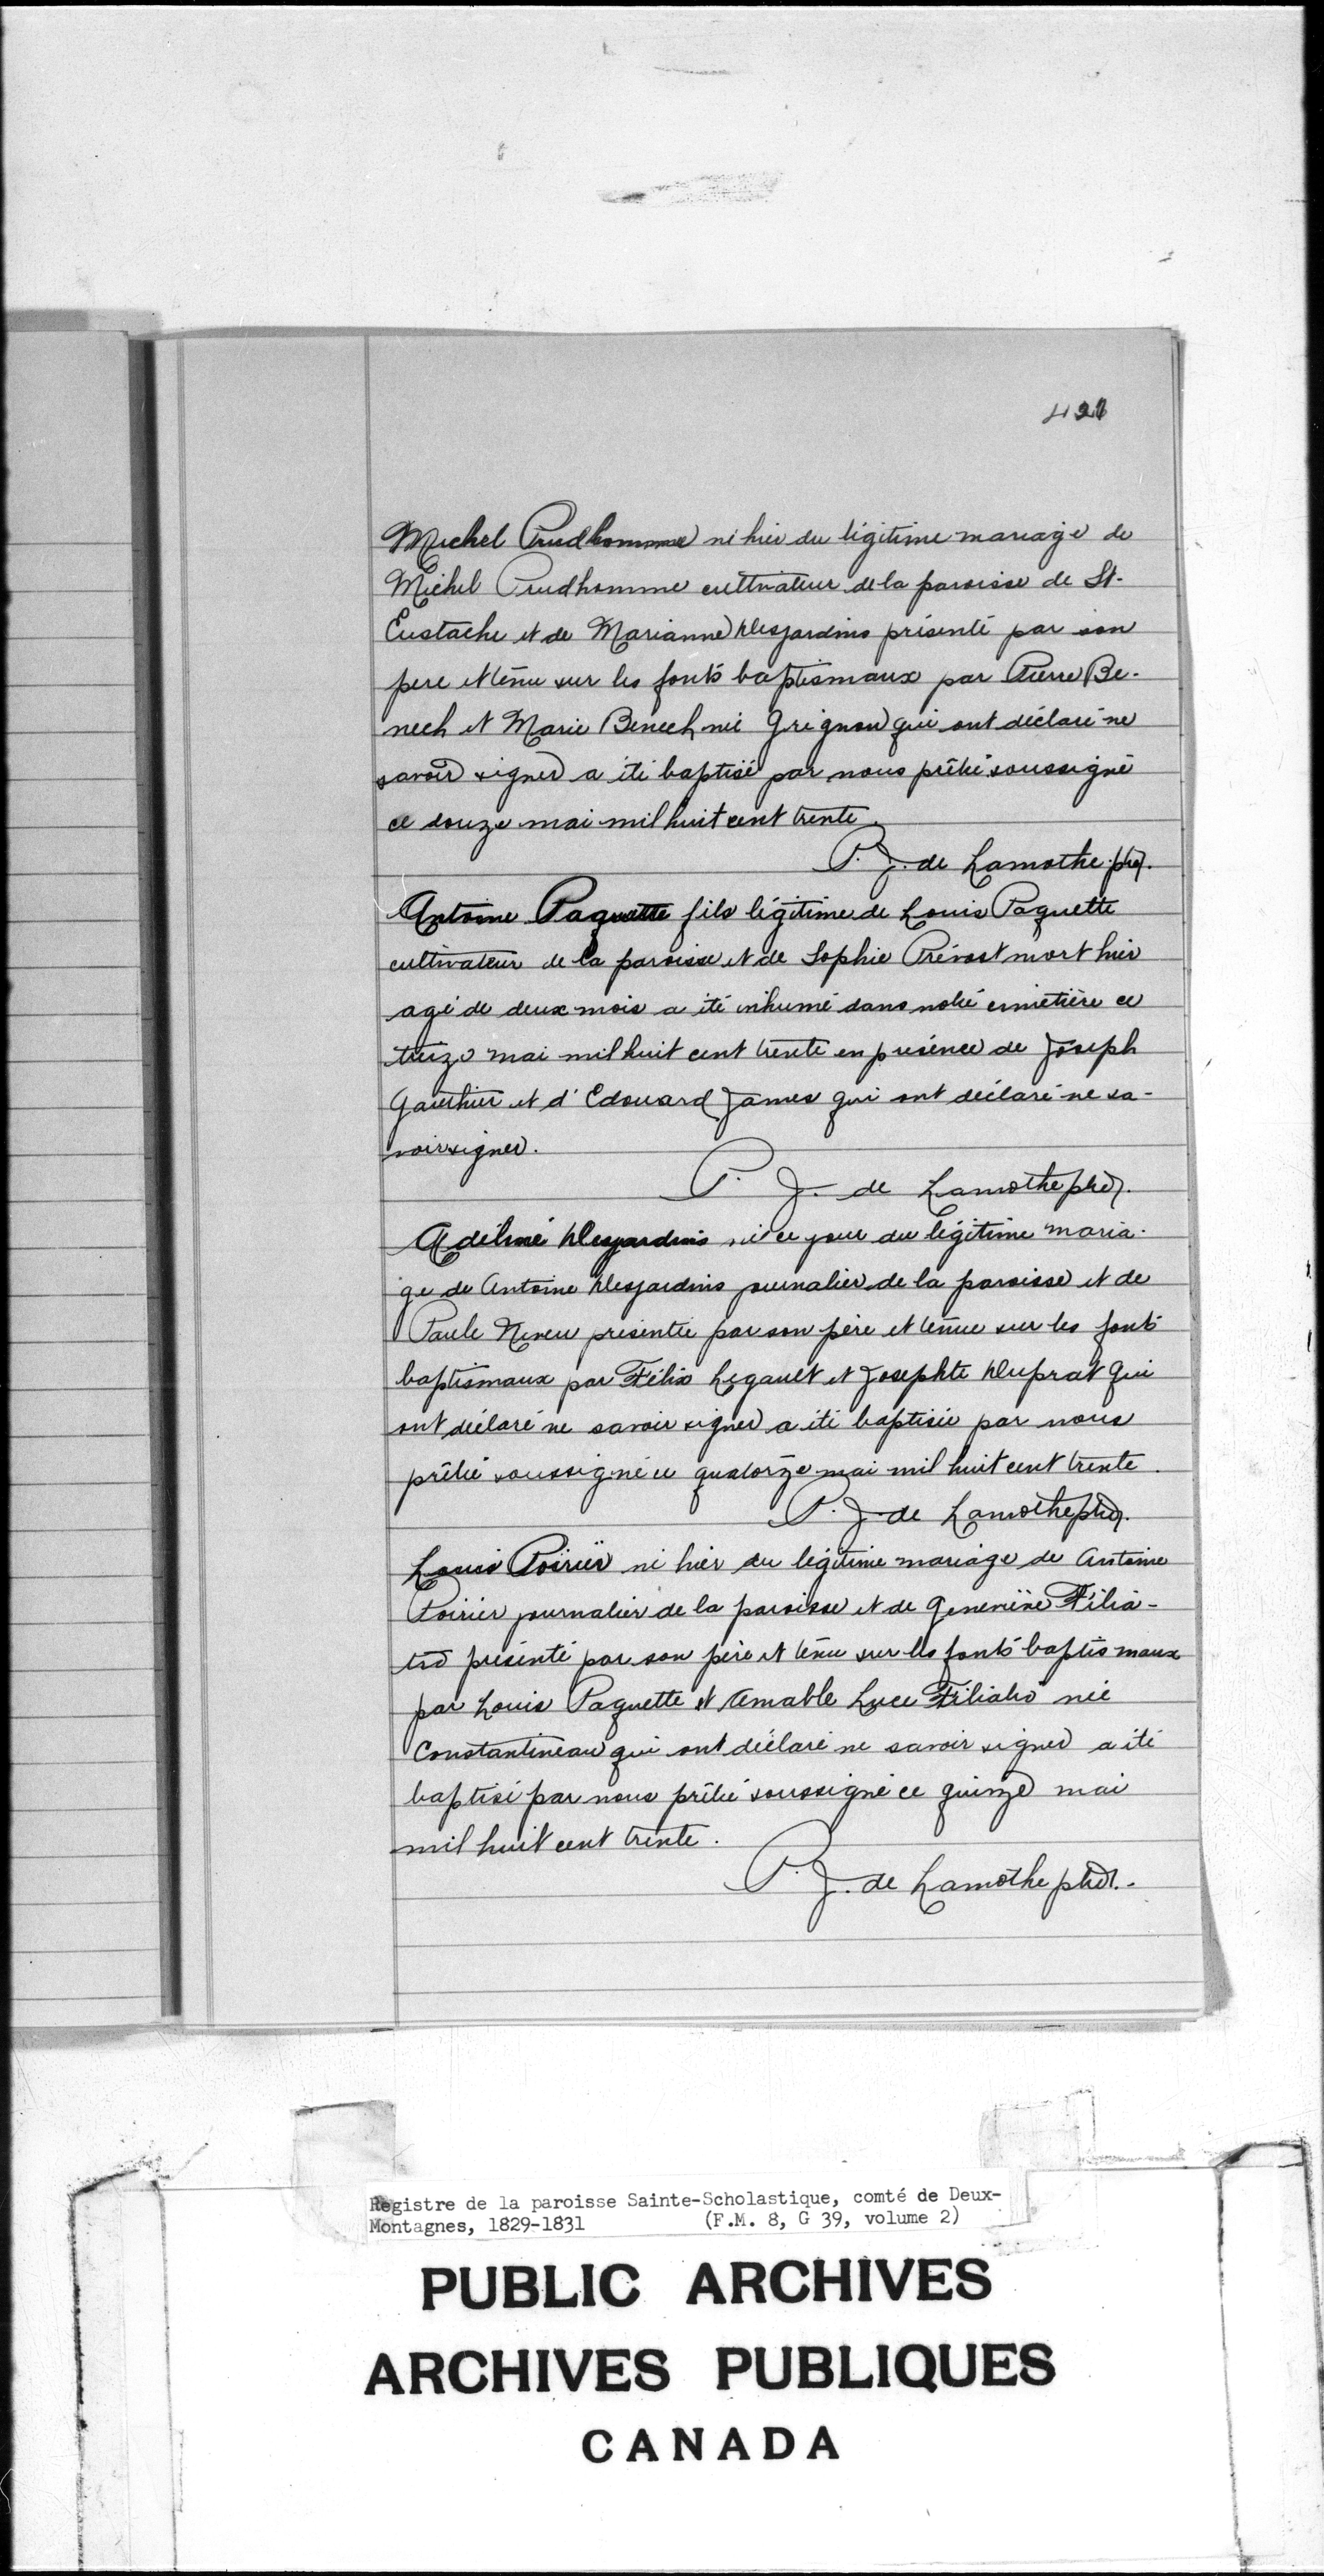 421
Michel Prudhomme né hier du légitime mariage de
Michel Prudhomme cultivateur de la paroisse de St-
Eustache et de Marianne Desjardins présenté par son
pere et tenu sur les fonts baptismaux par Pierre Be-
nech et Marie Benech née Grignon qui ont déclaré ne
savoir signer a été baptisé par nous prêtre soussigné
ce douze mai mil huit cent trente.
P. J. de Lamothe ptre.
Antoine Paquette fils légitime de Louis Paquette
cultivateur de la paroisse et de Sophie Prévost mort hier
agé de deux mois a été inhumé dans notre cimetière ce
treize mai mil huit cent trente en présence de Joseph
Gauthier et d'Edouard James qui ont déclaré ne sa-
voir signer.
P. J. de Lamothe ptre.
Adéline Desjardins née ce jour du légitime maria-
ge de Antoine Desjardins journalier de la paroisse et de
Paule Neveu presentée par son père et tenue sur les fonts
baptismaux par Félix Legault et Josephte Duprat qui
ont déclaré ne savoir signer a été baptisée par nous
prêtre soussigné ce quatorze mai mil huit cent trente.
P. J. de Lamothe ptre.
Louis Poirier né hier du légitime mariage de Antoine
Poirier journalier de la paroisse et de Geneviève Filia-
tro présenté par son père et tenu sur les fonts baptismaux
par Louis Paquette et Amable Luce Filiatro née
Constantineau qui ont déclaré ne savoir signer a été
baptisé par nous prêtre soussigné ce quinze mai
mil huit cent trente.
P. J. de Lamothe ptre.
Registre de la paroisse Sainte-Scholastique, comté de Deux-
Montagnes, 1829-1831 (F.M. 8, G 39, volume 2)
PUBLIC ARCHIVES
ARCHIVES PUBLIQUES
CANADA